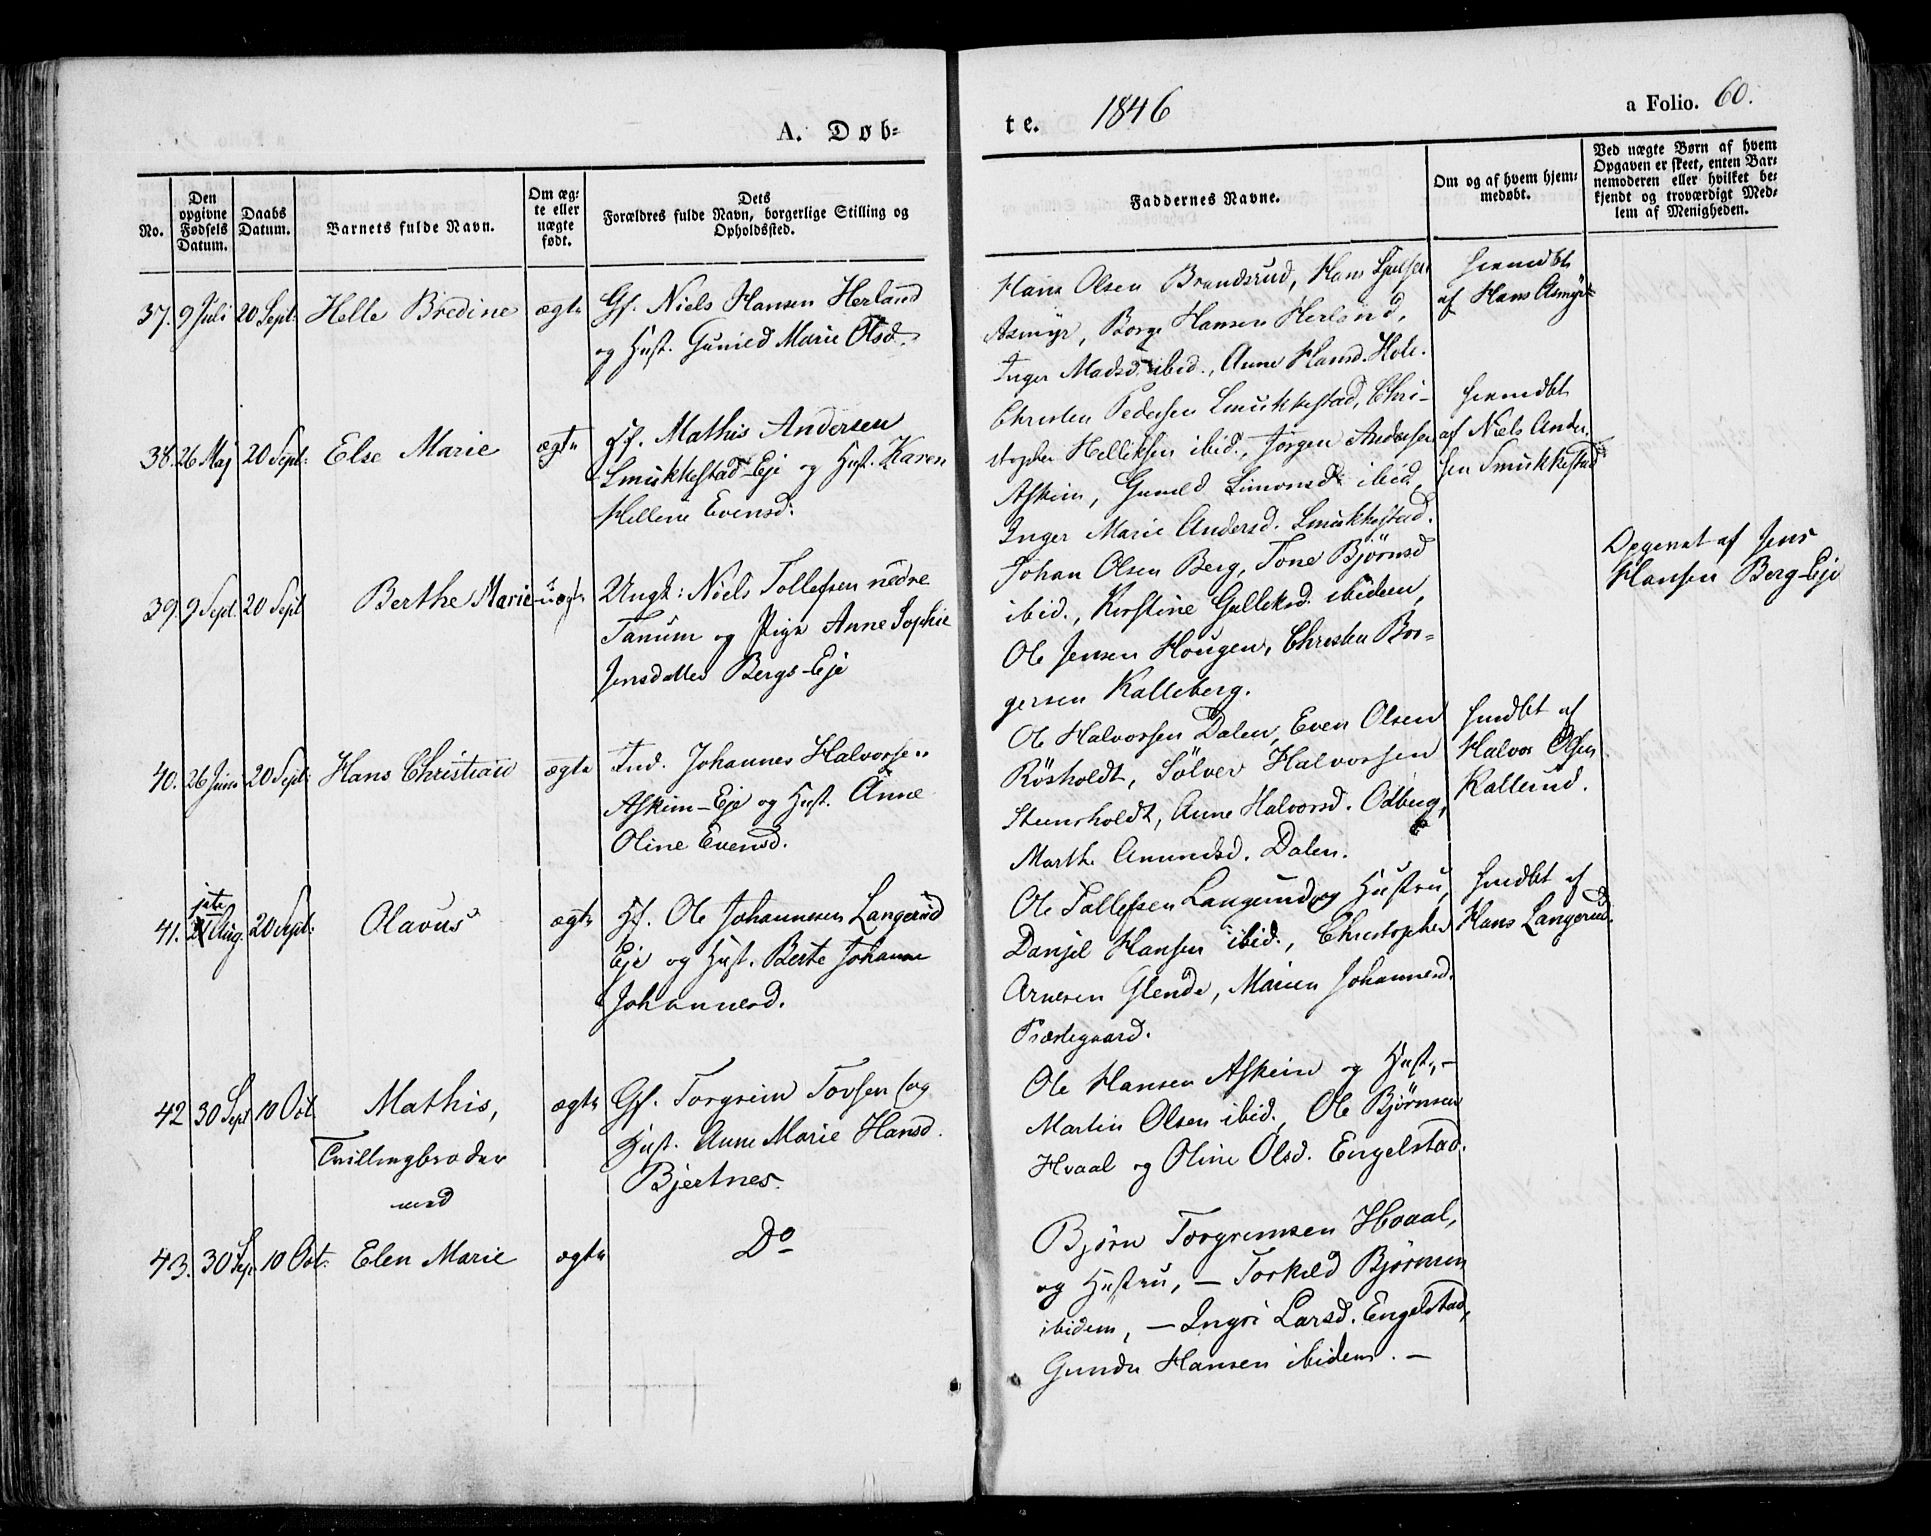 A. Døb-
te. 1846
a Folio. 60.
No.
Den opgivne Fødsels Datum.
Daabs Datum.
Barnets fulde Navn.
Om ægte eller nægte født.
Dets Forældres fulde Navn, borgerlige Stilling og Opholdssted.
Faddernes Navne.
Om og af hvem hjemmedøbt.
Ved nægte Børn af hvem Opgaven er skeet, enten Barnemoderen eller hvilket bekjendt og troværdigt Medlem af Menigheden.
37. 9 Juli 20 Sept: Helle Bredine ægte
Gf. Niels Hansen Herland
og Hust. Gunild Marie Olsd.
Hans Olsen Brandsrud, Hans
Asmyr, Borge Hansen Herland,
Inger Madsd. ibid., Anne Hansd. Hole.
hjemdbt
af Hans Asmyr
38. 26 Maj 20 Sept: Else Marie ægte
Hf. Mathis Andersen
Smukkestad-Eje og Hust. Karen
Hellene Evensd:
Christen Pedersen Smukkestad, Chri-
stopher Helliksen ibid., Jørgen Andersen
Askim, Guneld Simonsd ibid,
Inger Marie Andersd. Smukkestad.
hjemdbt
af Niels Ander
sen Smukkestad
39. 9 Sept. 20 Sept Berthe Marie uægt
Ungk: Niels Tollefsen nedre
Tanum og Pige Anne Sophie
Jensdatter Bergs-Eje
Johan Olsen Berg, Tone Bjørnsd
ibid., Kirstine Gulleksd. ibidem,
Ole Jensen Hougen, Christen Bor-
gersen Kalleberg.
Opgevet af Jens
Hansen Berg-Eje
40. 26 Juni 20 Sept: Hans Christian ægte
Ind. Johannes Halvorsen
Askim-Eje og Hust. Anne
Oline Evensd.
Ole Halvorsen Dalen, Even Olsen
Røsholdt, Sølver Halvorsen
Steensholdt, Anne Halvorsd. Odberg,
Marthe Amundsd. Dalen.
hmdbt af
Halvor Olsen
Kallerud.
41. 21 Aug. 20 Sept: Olavus ægte
Hf. Ole Johannesen Langerud
Eje og Hust. Berte Johanne
Johannesd.
Ole Tollefsen Langerud og Hustru,
Danjel Hansen ibid., Christopher
Arnesen Glende, Maren Johannesd.
Præstegaard.
hmdbt af
Hans Langerud.
42 30 Sept 10 Oct Mathis,
Tvillingbroder
med
ægte
Gf. Torgrim Tovsen (og
Hust. Anne Marie Hansd.
Bjertnes.
Ole Hansen Askim og Hust., -
Martin Olsen ibid., Ole Bjørnsen
Hvaal og Oline Olsd. Engelstad.
43. 30 Sep. 10 Oct: Elen Marie ægte
Do
Bjørn Torgrimsen Hvaal,
og Hustru, - Torkild Bjørnsen
ibidem, - Ingri Larsd. Engelstad,
Gunder Hansen ibidem. -